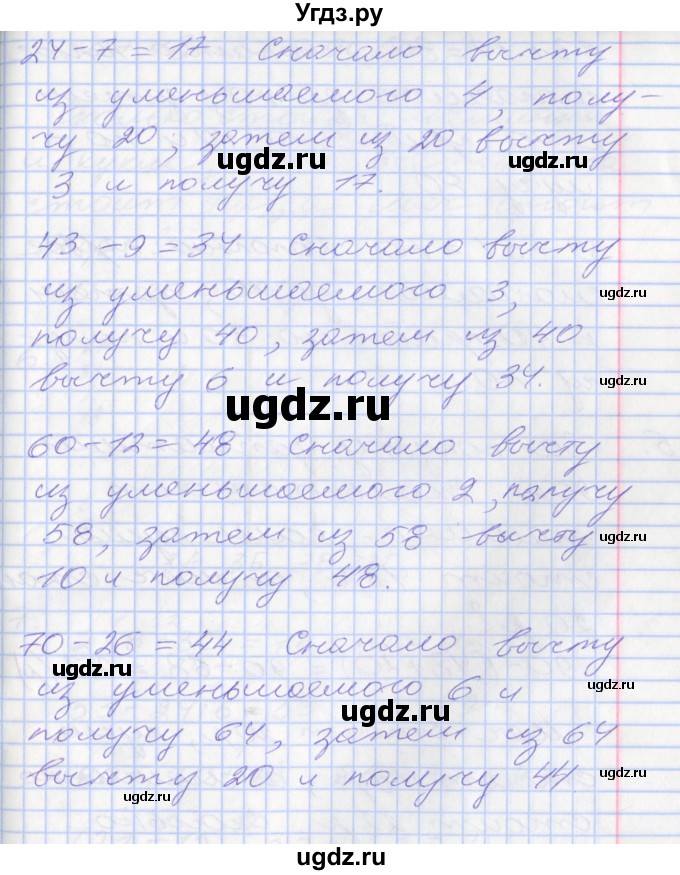 Угдз.ру
24 - 7 = 17 Сначало вычту
из уменьшаемого 4, полу-
чу 20, затем из 20 вычту
ugdz.ru ugdz.ru
3 и получу 17.
43 - 9 = 34 Сначало вычту
из уменьшаемого 3, ugdz.ru
получу 40, затем из 40
вычту 6 и получу 34. ugdz.ru
ugdz.ru
60 - 12 = 48 Сначало вычту
из уменьшаемого 2, палучу
58, затем из 58 вычту ugdz.ru
10 и получу 48.
70 - 26 = 44 Сначало вычту
ugdz.ru
из уменьшаемого 6 и ugdz.ru
ugdz.ru
получу 64, затем из 64
вычту 20 и получу 44 ugdz.ru
ugdz.ru
ugdz.ru